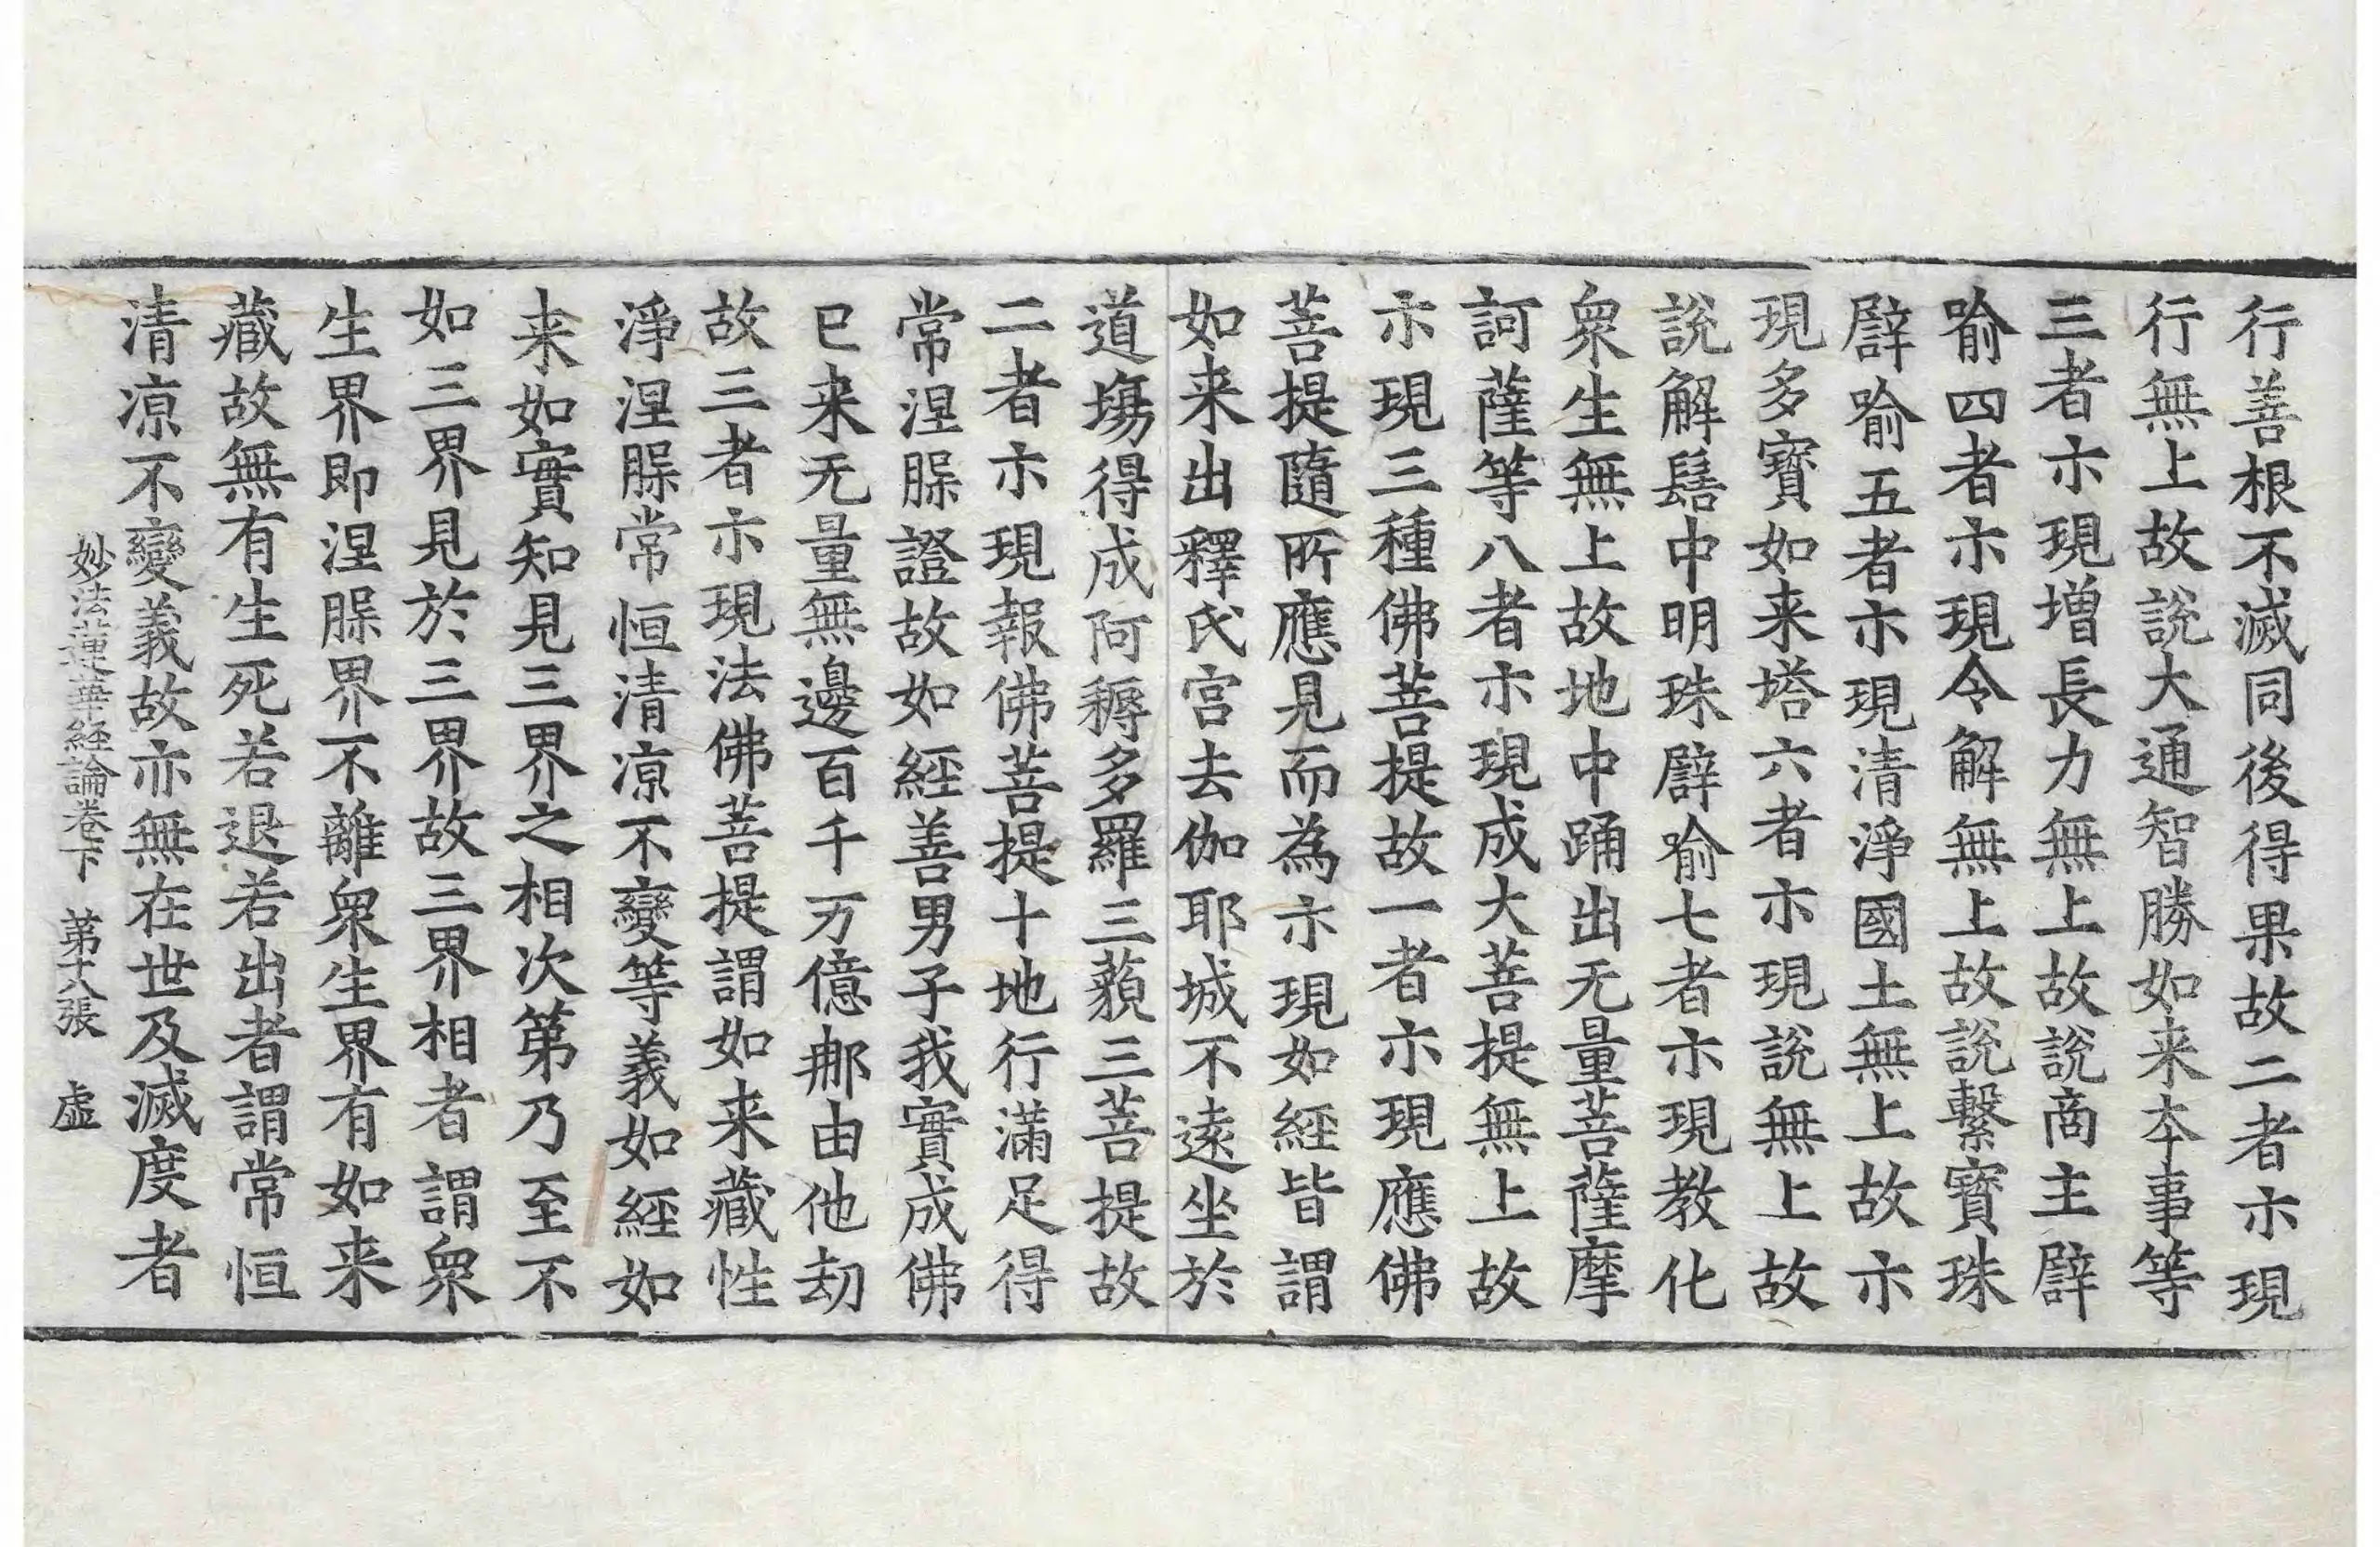 行善根不滅同後得果故二者示現
行無上故說大通智勝如来夲事等
三者示現增長力無上故說商主譬
喻四者示現令解無上故說繫寶珠
譬喻五者示現清淨國土無上故示
現多寶如来塔六者示現說無上故
說解髻中明珠譬喻七者示現教化
衆生無上故地中踊出无量菩薩摩
訶薩等八者示現成大菩提無上故
示現三種佛菩提故一者示現應佛
菩提隨所應見而為示現如經皆謂
如来出釋氏宮去伽耶城不遠坐於
道場得成阿耨多羅三藐三菩提故
二者示現報佛菩提十地行滿足得
常涅槃證故如經善男子我實成佛
已来无量無邊百千万億那由他劫
故三者示現法佛菩提謂如来藏性
淨涅槃常恒清凉不變等義如經如
来如實知見三界之相次第乃至不
如三界見於三界故三界相者謂衆
生界即涅槃界不離衆生界有如来
藏故無有生死若退若出者謂常恒
清凉不變義故亦無在世及滅度者
妙法蓮華經論卷下　第十八張　虛